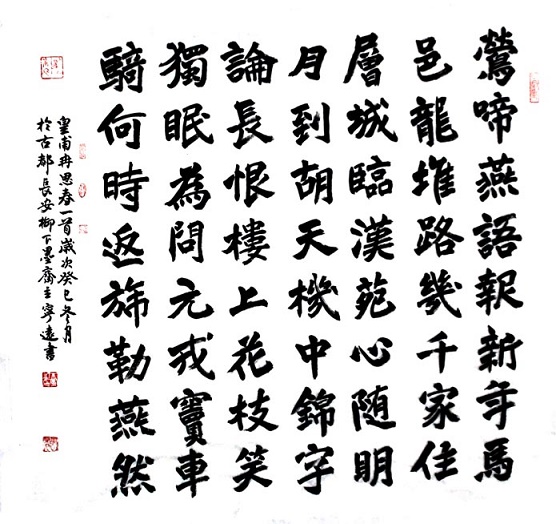 鶯啼燕語報新年馬
邑龍堆路幾千家住
層城臨漢苑心随明
月到胡天機中錦字
論長恨樓上花枝笑
獨眠為問元戎竇車
騎何時返旆勒燕然
皇甫冉思春一首歲次癸巳冬月
於古都長安柳下墨齋主寧遠書